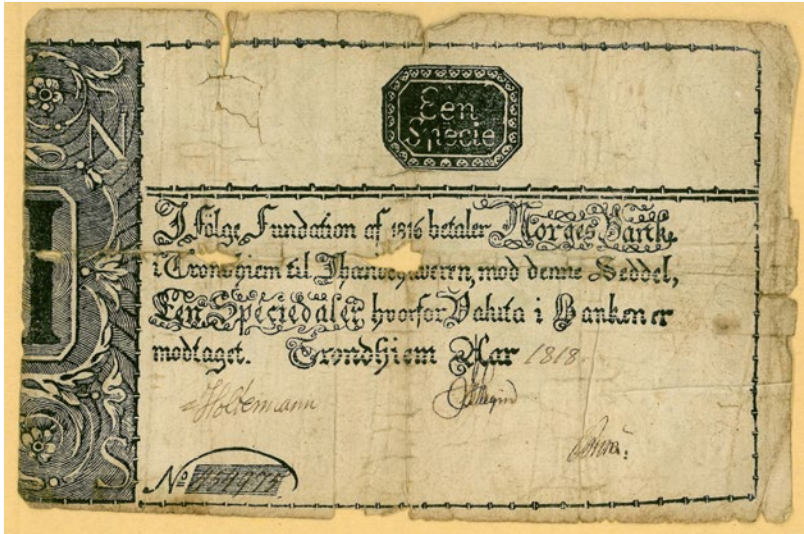 Een
Specie
I følge Fundation af 1816 betaler Norges Bank
i Trondhiem til Ihændehaveren, mod denne Seddel,
Een Speciedaler hvorfor Valuta i Banken er
modtaget. Trondhiem Aar 1818
Holtermann
No